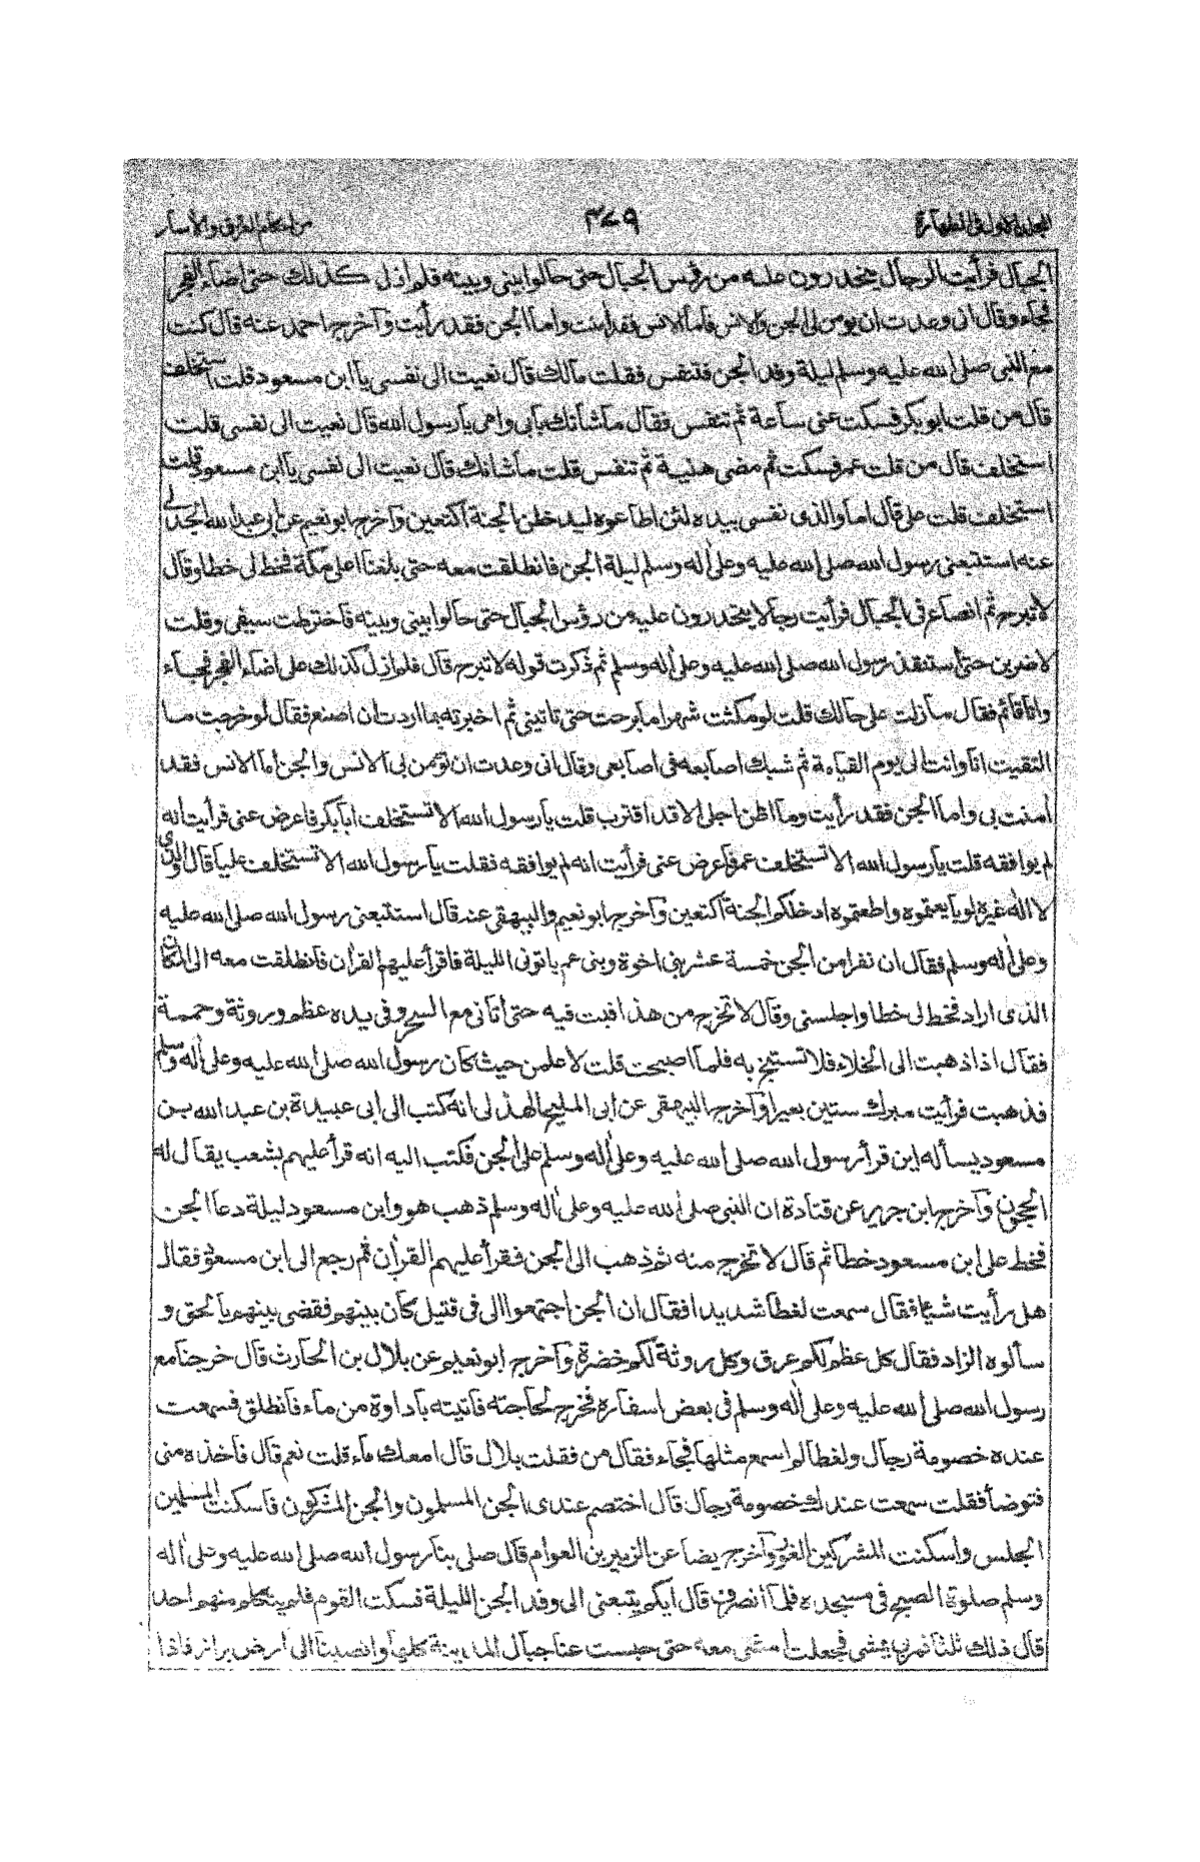 المجلد الاول فى الطهارة ٣٧٩ من احكام الفرق والآسار
الجبال فرأيت الرجال يتحدرون عليه من رؤس الجبال حتى حالوا بينى وبينه فلم ازل كذلك حتى اضاء الفجر
فجاء وقال انى وعدت ان يؤمن بى الجن والانس فاما الانس فقد امنت واما الجن فقد رأيت وآخرج احمد عنه قال كنت
مع النبى صلى الله عليه وسلم ليلة وفد الجن فتنفس فقلت مالك قال نعيت الى نفسى يا ابن مسعود قلت استخلف
قال من قلت ابو بكر فسكت عنى ساعة ثم تنفس فقال ما شأنك بابى وامى يا رسول الله قال نعيت الى نفسى قلت
استخلف قال من قلت عمر فسكت ثم مضى هنية ثم تنفس قلت ما شانك قال نعيت الى نفسى يا ابن مسعود قلت
استخلف قلت على قال اما والذى نفسى بيده لئن اطاعوه ليدخلن الجنة اكتعين وآخرج ابو نعيم عن ابى عبد الله الجدلى
عنه استتبعنى رسول الله صلى الله عليه وعلى اٰله وسلم ليلة الجن فانطلقت معه حتى بلغنا اعلى مكة فخط لى خطا وقال
لا تبرح ثم انصاع فى الجبال فرأيت رجالا يتحدرون عليه من رؤس الجبال حتى حالوا بينى وبينه فاخترطت سيفى وقلت
لاضربن حتى استنقذ رسول الله صلى الله عليه وعلى اٰله وسلم ثم ذكرت قوله لا تبرح قال فلم ازل كذلك على اضاء الفجر فجاء
وانا قائم فقال ما زلت على حالك قلت لو مكثت شهرا ما برحت حتى تاتينى ثم اخبرته بما اردت ان اصنع فقال لو خرجت ما
التقيت انا وانت الى يوم القيامة ثم شبك اصابعه فى اصابعى وقال انى وعدت ان تؤمن بى الانس والجن اما الانس فقد
اٰمنت بى واما الجن فقد رأيت وما اظن اجلى الا قد اقترب قلت يا رسول الله الا تستخلف ابا بكر فاعرض عنى فرأيت انه
لم يوافقه قلت يا رسول الله الا تستخلف عمر فاعرض عنى فرأيت انه لم يوافقه فقلت يا رسول الله الا تستخلف عليا قال والذى
لا اله غيره لو بايعتموه واطعتموه ادخلكم الجنة اكتعين وآخرج ابو نعيم والبيهقى عنه قال استتبعنى رسول الله صلى الله عليه
وعلى اٰله وسلم فقال ان نفرا من الجن خمسة عشر بنى اخوة وبنى عم ياتونى الليلة فاقرأ عليهم القراٰن فانطلقت معه الى المكان
الذى اراد فخط لى خطا واجلسنى وقال لا تخرج من هذا فبت فيه حتى اتانى مع السحر وفى يده عظم وروثة وحممة
فقال اذا ذهبت الى الخلاء فلا تستنج به فلما اصبحت قلت لاعلمن حيث كان رسول الله صلى الله عليه وعلى اٰله وسلم
فذهبت فرأيت مبرك ستين بعيرا وآخرج البيهقى عن ابى المليح الهذلى انه كتب الى ابى عبيدة بن عبد الله بن
مسعود يسأله اين قرأ رسول الله صلى الله عليه وعلى اٰله وسلم على الجن فكتب اليه انه قرأ عليهم بشعب يقال له
الحجون وآخرج ابن جرير عن قتادة ان النبى صلى الله عليه وعلى اٰله وسلم ذهب هو وابن مسعود ليلة دعا الجن
فخط على ابن مسعود خطا ثم قال لا تخرج منه ثم ذهب الى الجن فقرأ عليهم القراٰن ثم رجع الى ابن مسعود فقال
هل رأيت شيئا فقال سمعت لغطا شديدا فقال ان الجن اجتمعوا الى فى قتيل كان بينهم فقضى بينهم بالحق و
سألوه الزاد فقال كل عظم لكم عرق وكل روثة لكم خضرة وآخرج ابو نعيم عن بلال بن الحارث قال خرجنا مع
رسول الله صلى الله عليه وعلى اٰله وسلم فى بعض اسفاره فخرج لحاجته فاتيته باداوة من ماء فانطلق فسمعت
عنده خصومة رجال ولغطا لم اسمع مثلها فجاء فقال من فقلت بلال قال امعك ماء قلت نعم قال فاخذه منى
فتوضأ فقلت سمعت عندك خصومة رجال قال اختصم عندى الجن المسلمون والجن المشركون فاسكنت المسلمين
الجلس واسكنت المشركين الغور وآخرج ايضا عن الزبير بن العوام قال صلى بنا رسول الله صلى الله عليه وعلى اٰله
وسلم صلوة الصبح فى مسجده فلما انصرف قال ايكم يتبعنى الى وفد الجن الليلة فسكت القوم فلم يتكلم منهم احد
قال ذلك ثلثا فمر بى يمشى فجعلت امشى معه حتى حبست عنا جبال المدينة كلها وافضينا الى ارض براز فاذا